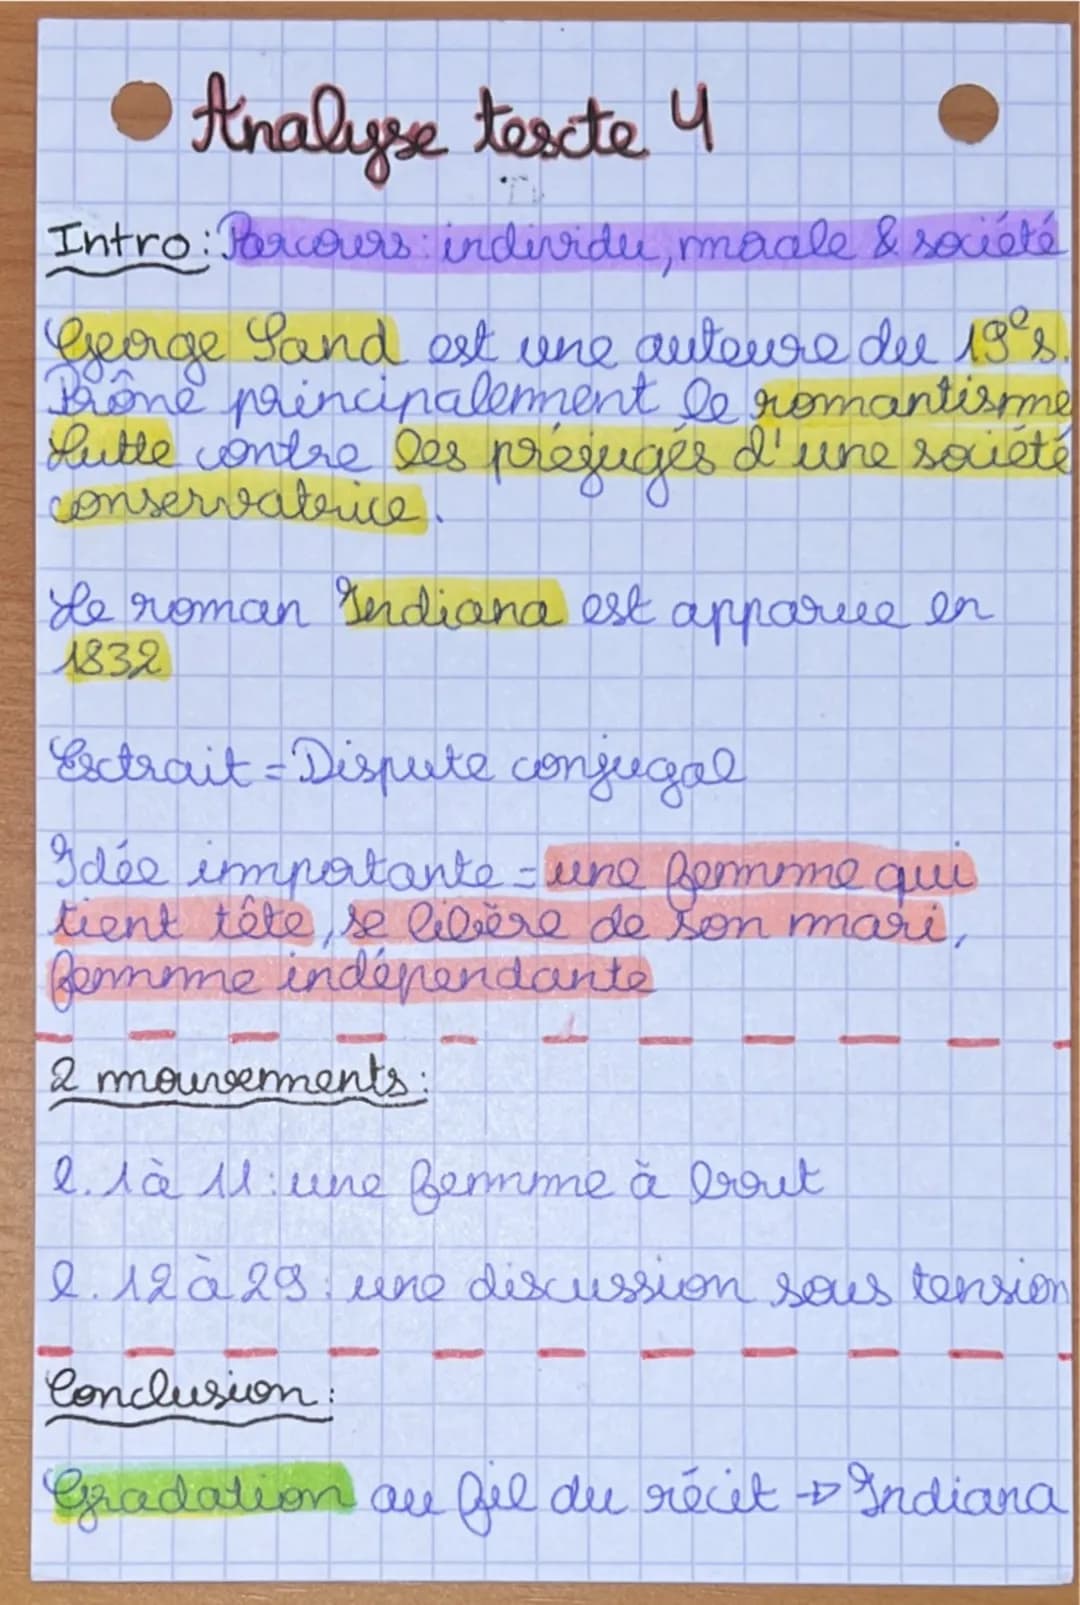 Analyse texte 4
Intro: Parcours: individu, morale & société
George Sand est une auteure du 19e s.
Prône principalement le romantisme
Lutte contre les préjugés d'une société
conservatrice.
Le roman Indiana est apparue en
1832
Extrait = Dispute conjugal
Idée importante = une femme qui
tient tête, se libère de son mari,
femme indépendante
2 mouvements:
l. 1 à 11: une femme à bout
l. 12 à 29: une discussion sous tension
Conclusion:
Gradation au fil du récit → Indiana